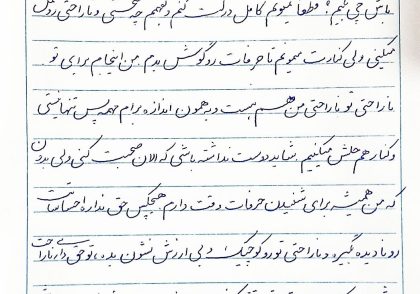 باش چی بگیم؟ قطعا نمیتونم کامل درکت کنم و بفهمم چه سختی و ناراحتی رو تحمل
میکنی ولی کنارت میمونم تا حرفات رو گوش بدم. من اینجام برای تو
ناراحتی تو ناراحتی من هم هست و به همون اندازه برام مهمه پس تنها نیستی
و کنار هم حلش میکنیم. شاید دوست نداشته باشی که الان صحبت کنی ولی بدون
که من همیشه برای شنیدن حرفات وقت دارم هیچکس حق نداره احساسات
رو نادیده بگیره و ناراحتی تو رو کوچیک و بی ارزش نشون بده، تو حق داری ناراحت